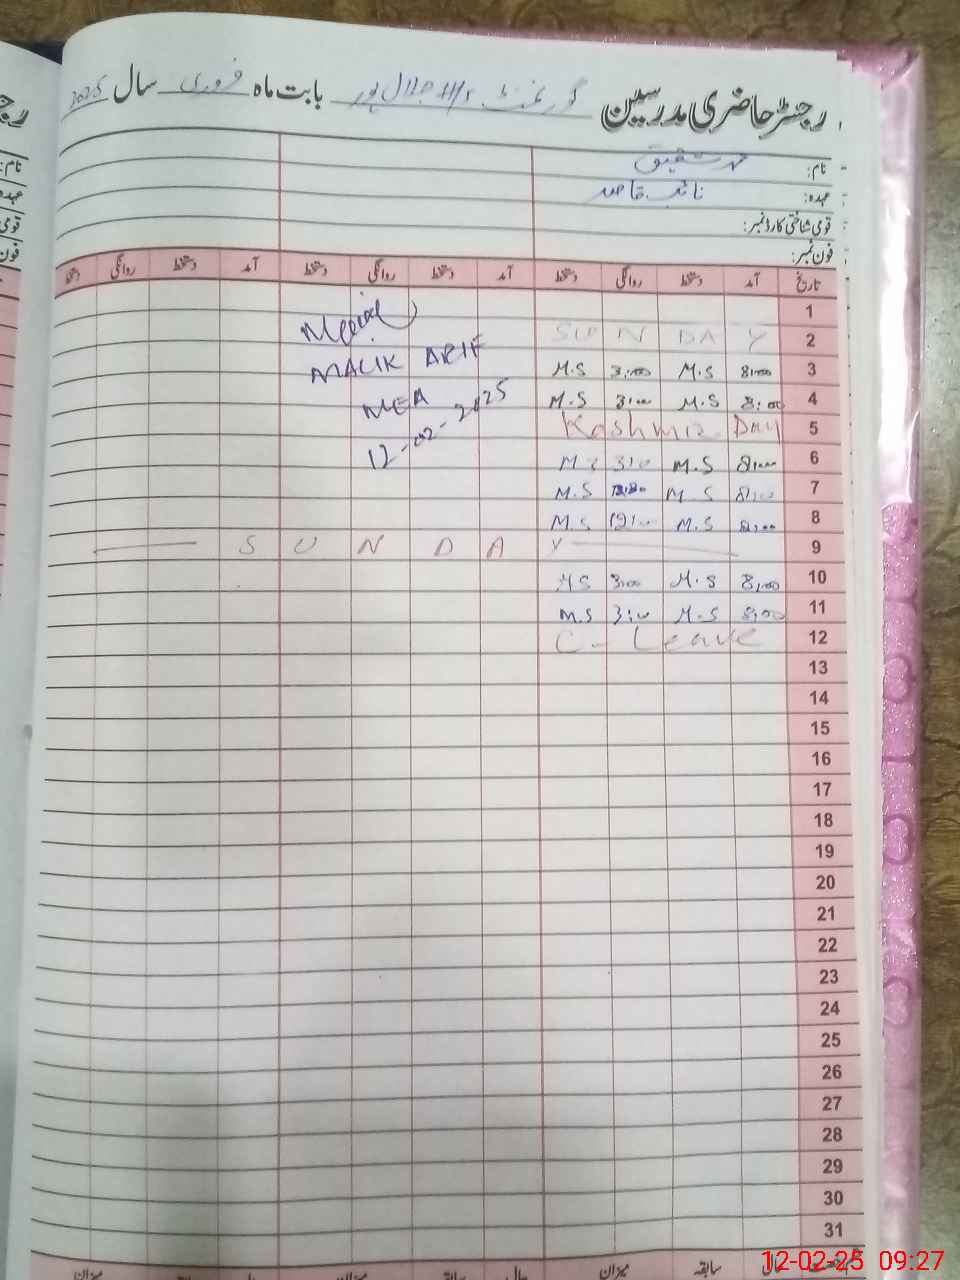 رجسٹر حاضری مدرسین گورنمنٹ H/S جلال پور بابت ماہ فروری سال 2025
نام: محمد شفیق
عہدہ: نائب قاصد
قومی شناختی کارڈ نمبر:
فون نمبر:
تاریخ آمد دستخط روانگی دستخط آمد دستخط روانگی دستخط آمد دستخط روانگی دستخط
1
2 SUNDAY
3 8:00 M.S 3:00 M.S
4 8:00 M.S 3:00 M.S
5 Kashmir DAY
6 8:00 M.S 3:0 M S
7 8:0 M S 12:30 M.S
8 8:00 M.S 12:00 M.S
9 SUNDAY
10 8:00 M.S 3:00 MS
11 8:00 M.S 3:0 M.S
12 C-Leave
13
14
15
16
17
18
19
20
21
22
23
24
25
26
27
28
29
30
31
MALIK ARIF
MEA
12-02-2025
سابقہ میزان
12-02-25 09:27